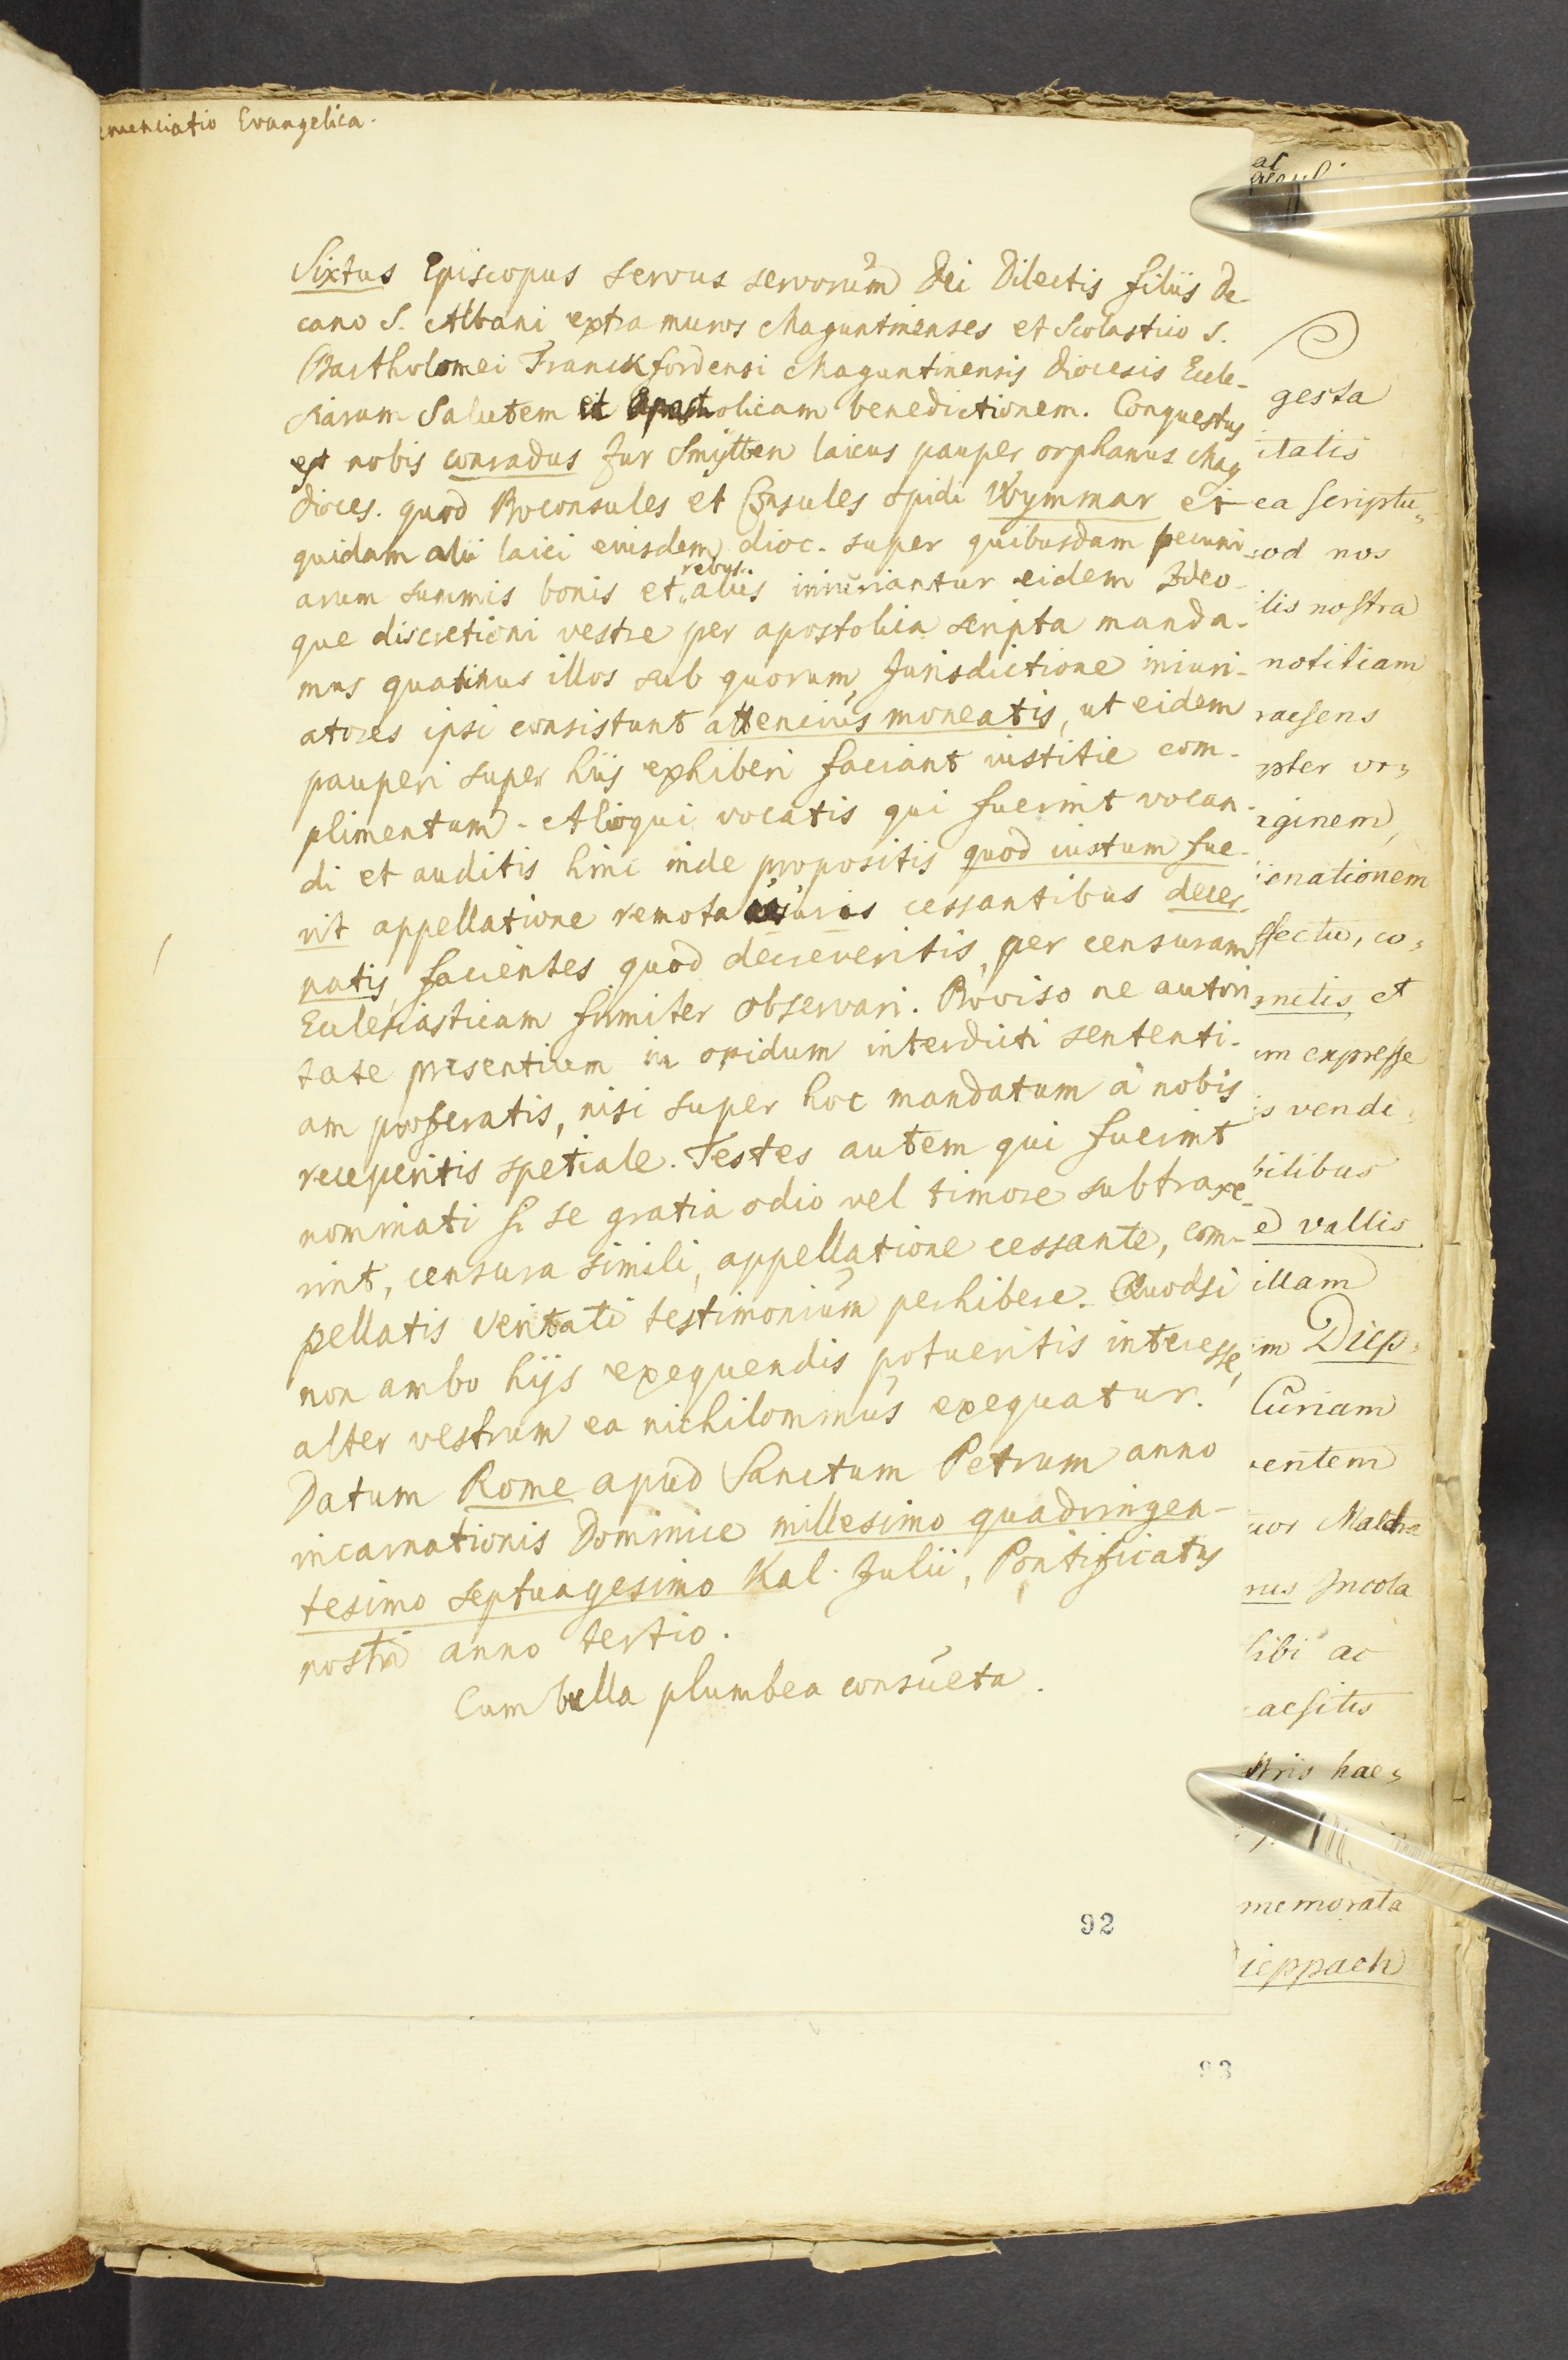 enunciatio Evangelica.
Sixtus Episcopus servus servorum Dei Dilectis filiis De-
cano S. Albani extra muros Maguntinenses et Scolastico S.
Bartholomei Franckfordensi Maguntinensis Diocesis Eccle-
siarum Salutem et Apostolicam benedictionem. Conquestus
est nobis conradus Zur Smytten laicus pauper orphanus Mag
dioces. quod Proconsules et Consules opidi Wymmar et
quidam alii laici eiusdem dioc. super quibusdam pecuni
arum summis bonis et rebus aliis iniuriantur eidem Ideo-
que discretioni vestre per apostolica scripta manda-
mus quatinus illos sub quorum Jurisdictione iniuri-
atores ipsi consistunt attencius moneatis, ut eidem
pauperi super hiis exhiberi faciant iustitie com-
plimentum. Alioqui vocatis qui fuerint vocan-
di et auditis hinc inde propositis quod iustum fue-
rit appellatione remota usuris cessantibus decer-
natis, facientes quod decreveritis, per censuram
Ecclesiasticam firmiter observari. Proviso ne autori
tate presentium in opidum interdicti sententi-
am proferatis, nisi super hoc mandatum à nobis
receperitis spetiale. Testes autem qui fuerint
nominati si se gratia odio vel timore subtraxe-
rint, censura simili, appellatione cessante, com-
pellatis veritati testimonium perhibere. Quodsi
non ambo hijs exequendis potueritis interesse,
alter vestrum ea nichilominus exequatur.
Datum Rome apud Sanctum Petrum anno
incarnationis Dominice millesimo quadringen-
tesimo septuagesimo Kal. Julii, Pontificatus
nostri anno tertio.
Cum bulla plumbea consueta.
92
93
gesta
itatis
ea scriptu,,
od nos
ilis nostra
notitiam
raesens
pter vo,,
iginem,
ienationem
ffectu, co,,
melis, et
um expresse
is vendi,,
bilibus
e vallis
illam
im Diep,,
Curiam
entem
uor Maldra
nus Incola
sibi ac
aesitis
stris hae,,
memorata
ieppach